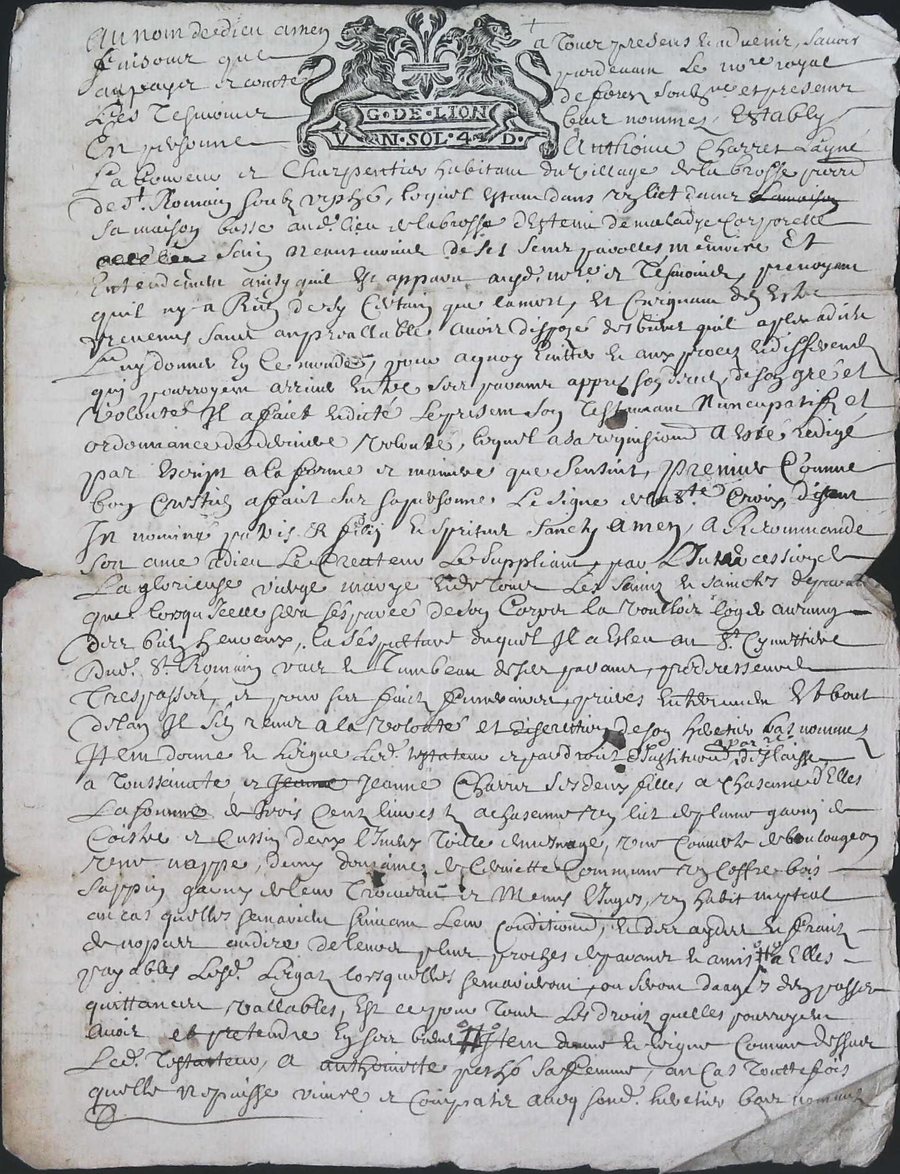 Au nom de dieu amen
a Tous presens et advenir, scavoir
faisons que
pardevant Le no.re royal
au payis et comté
de forez soubz.né et presens
Les Tesmoins
bas nommez, Estably
En personne
Anthoine Charret Layné
G·DE·LION
VN·SOL·4·D·
Laboureur et Charpentier habitant du village de la brosse parr.
de St. Romain soubz urphé, lequel estant dans un lict dans
sa maison basse aud. lieu de la brosse destenu de maladye Corporelle
sain neantmoins de ses sens parolles mémoire Et
Entendement ainsy quil Est apparu aud. no.re et Tesmoins, prevoyant
quil ny a Rien de sy Certain que la mort, Et Craignant den Estre
prevenus sans au preallable avoir dispozé des biens quil a pleu a dieu
Luy donner En Ce monde, pour a quoy Eviter Et aux procez Et differends
qui pourroyent arriver Entre ses parans appres son decez, de son gré et
volonté Il a faict Et dicté Le presant son Testament Nuncupatif et
ordonnance de derniere volonté, lequel a sa requisition a Esté redigé
par Escript a la forme et maniere que sensuit, premier Comme
bon Crestien a faict sur sa personne Le signe de la Ste Croix disant
In nomine patris Et filij Et spiritus Sancty Amen, A Recommandé
son ame a dieu Le Createur Le Suppliant, par L'Intercession de
La glorieuse vierge marye Et de tous Les Saints Et Sainctes de paradis
que lorsquicelle sera separée de son Corps la vouloir loger au rang
des bien heureux, la sepulture duquel Il a Esleu au St. Cymettiere
dud. St. Romain vas Et Tumbeau de ses parans, predecesseurs
Trespassés, et pour ses fraix funeraires, prieres Enterrement Et bout
de lan Il sen remet a la volonté et discrettion de son heretier bas nommez
Item donne Et Legue Led. testateur et par droit d'Institution delaisse
a Toussaincte et Jeanne Charret ses deux filles a chascune d'Elles
La somme de trois Cent livres Et a chascune un lict de plume garny de
Coistre et Cussin deux linceux Toille de mesnage, une Couverte de boulougeon
une nappe, demy domaine de serviette Commune un Coffre bois
sappin garny de leur Trousseau et Menus linges, un habit nuptial
au cas quelles se marient suivant leur Condition, Et des aydes Et fraix
de nopces au dire de leurs plus proches de parans Et amis a Elles
payables Lesd. Legatz lorsquelles se mariront, ou seront daage den passer
quittances vallables, Est ce pour Tous Les droits quelles pourroyent
avoir et pretendre En ses biens Item donne Et legue Comme dessus
Led. Testateur, A anthoinette sa femme, au Cas Touttefois
quelle ne puisse vivre et Compatir avecq sond. heretier bas nommé